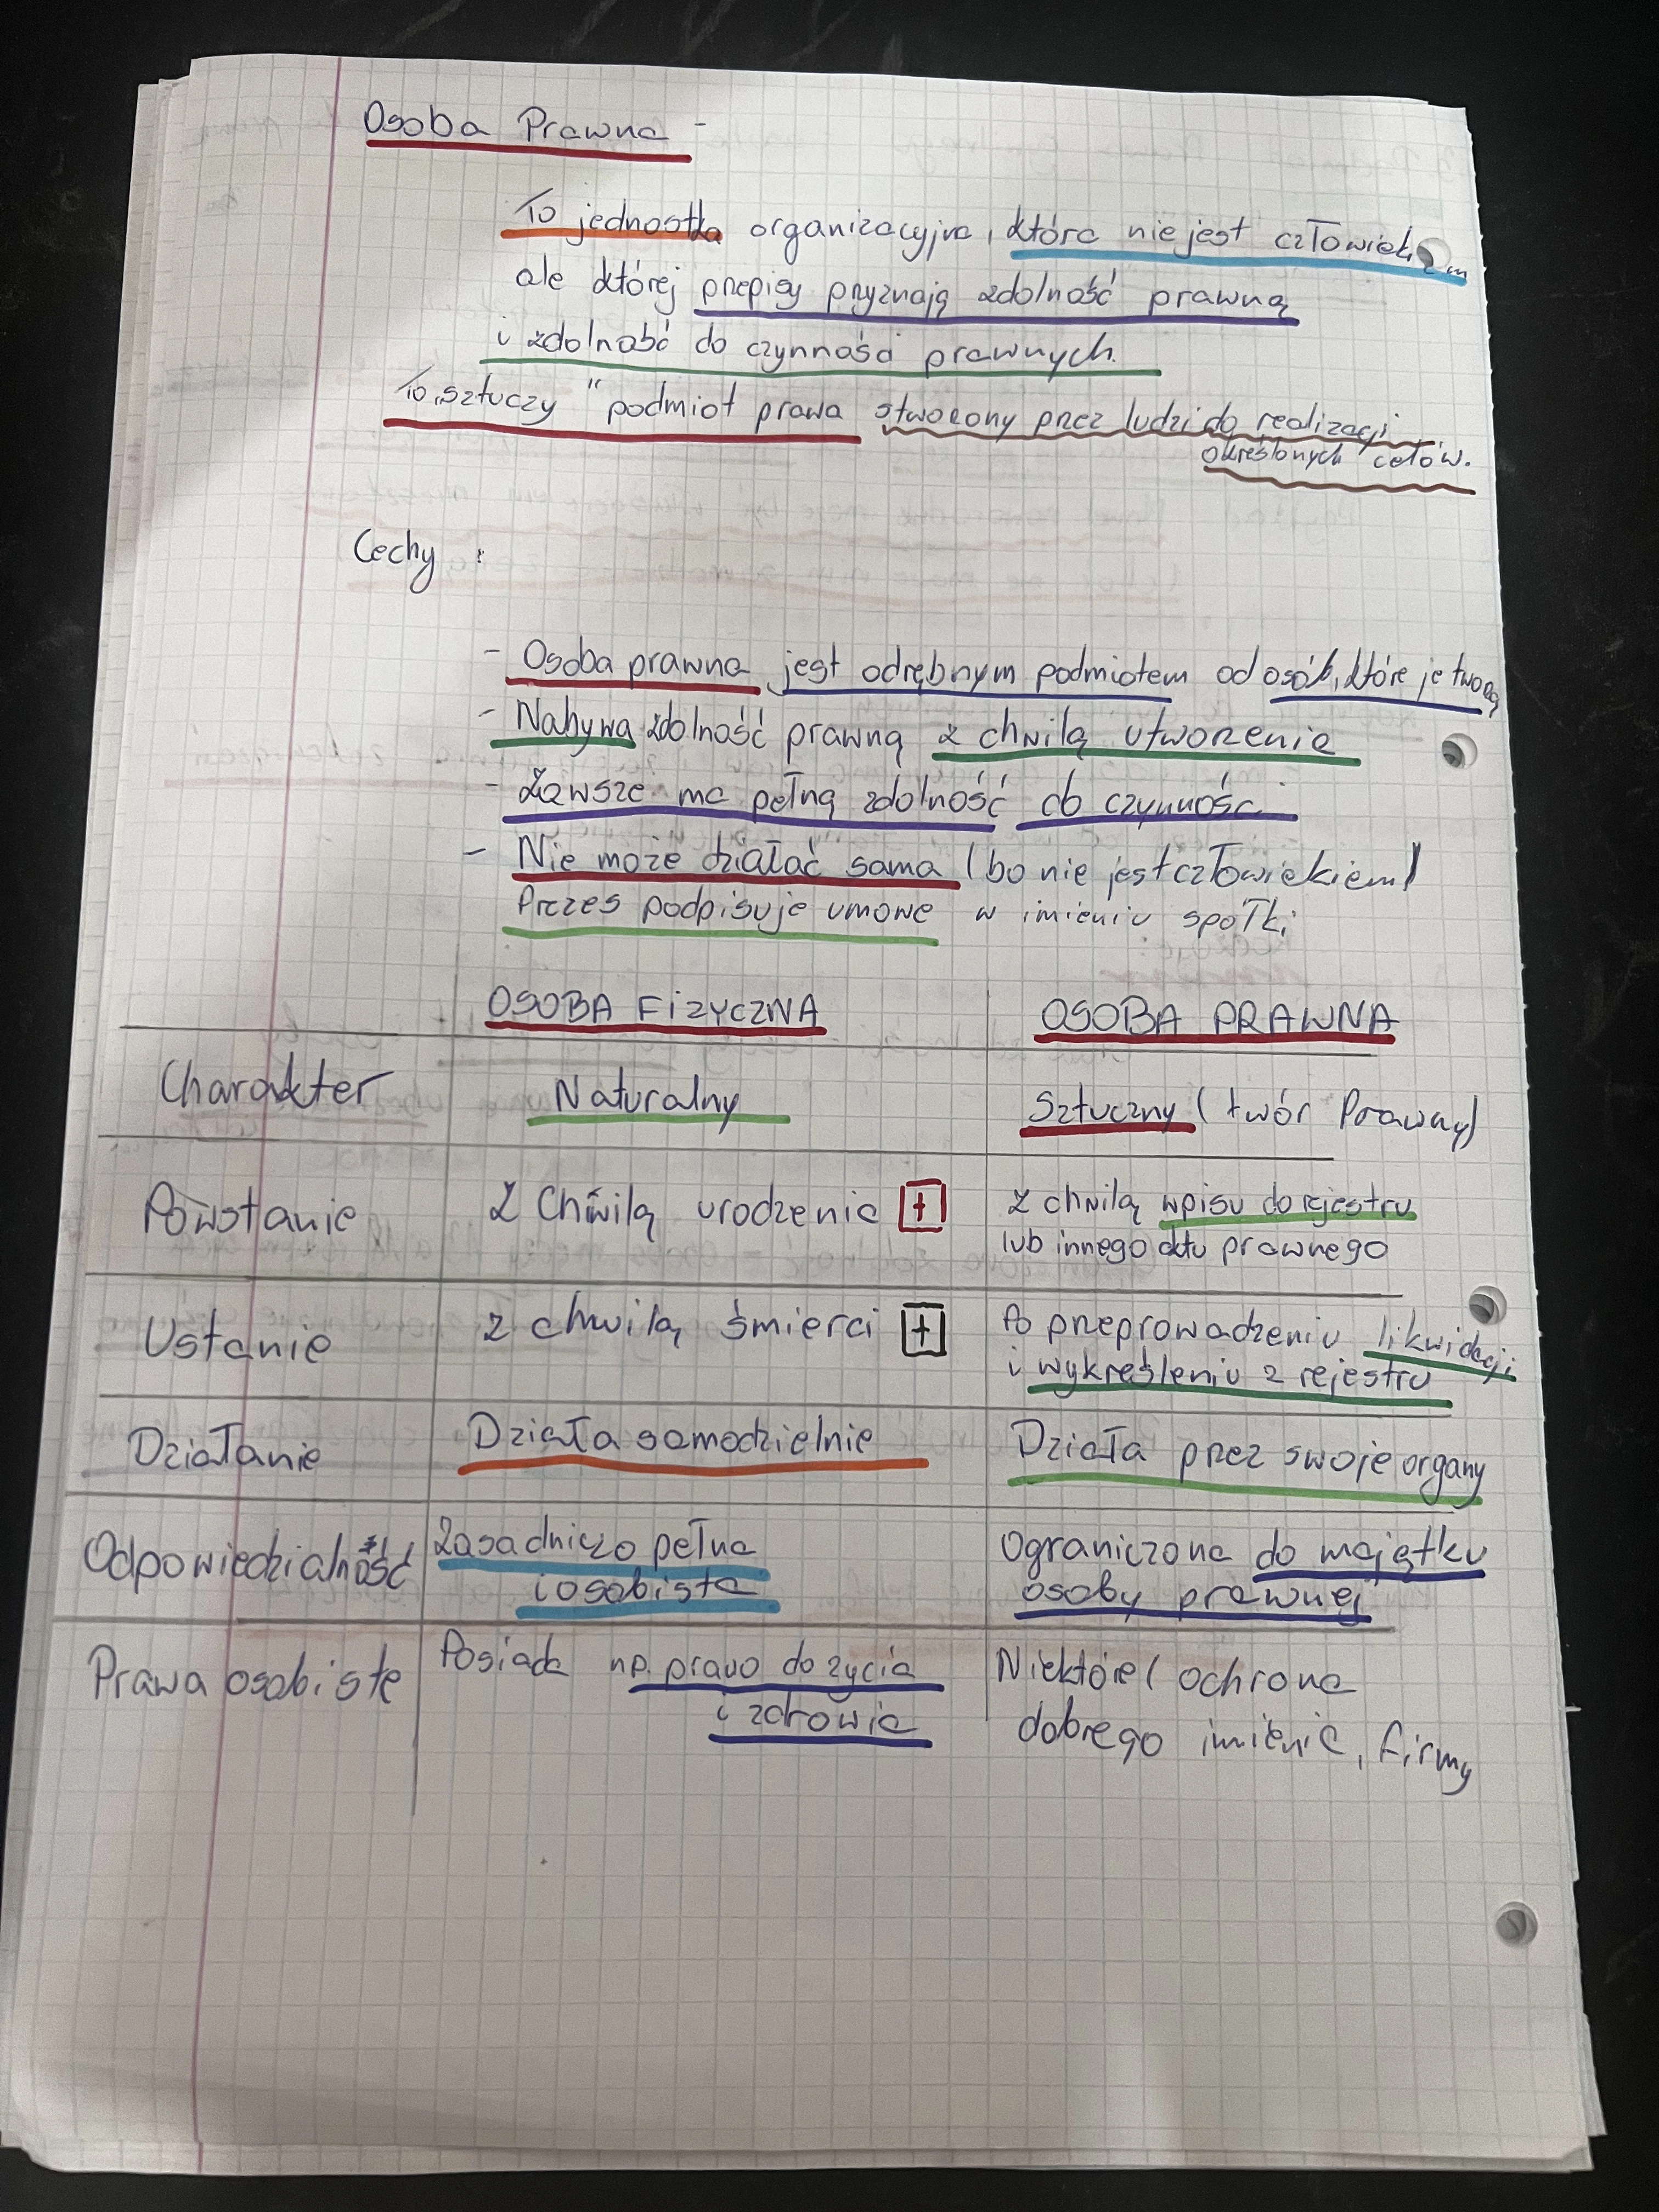 Osoba Prawna -
To jednostka organizacyjna, która nie jest człowiekiem
ale której przepisy przyznają zdolność prawną
i zdolność do czynności prawnych.
To „sztuczy" podmiot prawa stworzony przez ludzi do realizacji
określonych celów.
Cechy :
- Osoba prawna jest odrębnym podmiotem od osób, które je tworzą
- Nabywa zdolność prawną z chwilą utworzenia
- Zawsze ma pełną zdolność do czynności
- Nie może działać sama (bo nie jest człowiekiem)
Prezes podpisuje umowe w imieniu spółki
OSOBA FIZYCZNA OSOBA PRAWNA
Charakter Naturalny Sztuczny (twór Prawny)
Powstanie Z Chwilą urodzenia + Z chwilą wpisu do rejestru
lub innego aktu prawnego
Ustanie z chwilą śmierci + Po przeprowadzeniu likwidacji
i wykreśleniu z rejestru
Działanie Działa samodzielnie Działa przez swoje organy
Odpowiedzialność Zasadniczo pełna Ograniczona do majątku
i osobista osoby prawnej
Prawa osobiste Posiada np. prawo do życia Niektóre (ochrona
i zdrowia dobrego imienia, firmy